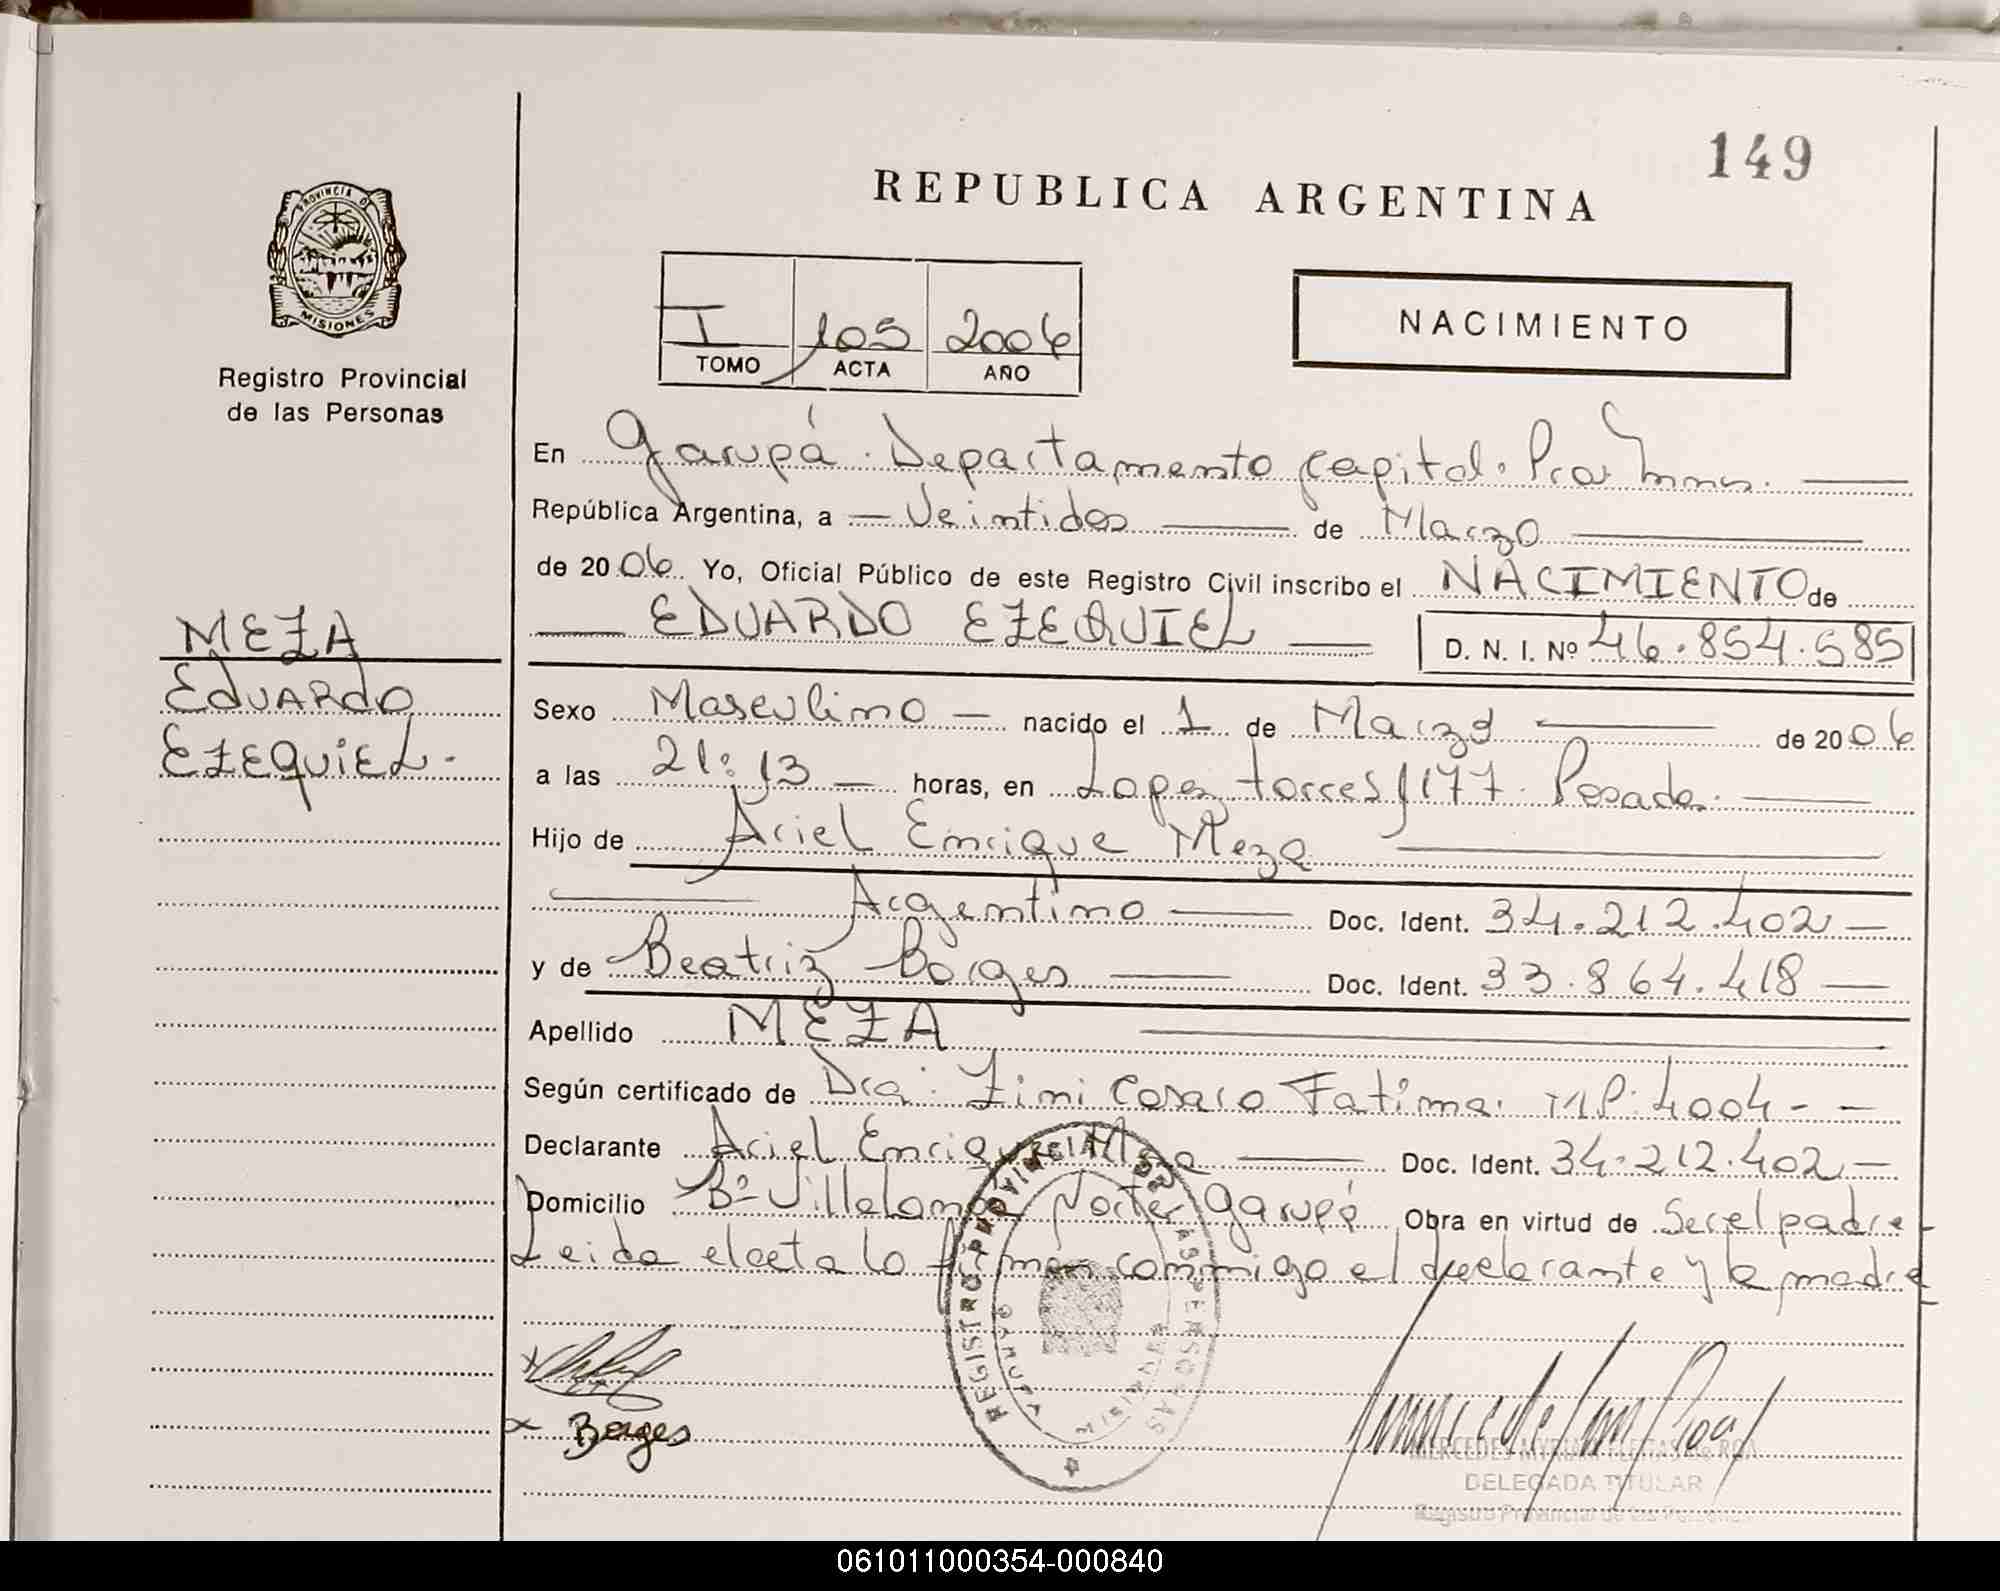 149
REPUBLICA ARGENTINA
PROVINCIA D
MISIONES
Registro Provincial
de las Personas
I 105 2006
TOMO ACTA AÑO
NACIMIENTO
En Garupá. Departamento Capital. Pcia Mnes.
República Argentina, a Veintidos de Marzo
de 2006 Yo, Oficial Público de este Registro Civil inscribo el NACIMIENTO de
EDUARDO EZEQUIEL D. N. I. Nº 46.854.585
MEZA
EDUARDO
EZEQUIEL.-
Sexo Masculino nacido el 1 de Marzo de 2006
a las 21:13 horas, en Lopez torres 1177. Posadas.
Hijo de Ariel Enrique Meza
Argentino Doc. Ident. 34.212.402
y de Beatriz Borges Doc. Ident. 33.864.418
Apellido MEZA
Según certificado de Dra. Zimi Fatima. MP: 4004 - -
Declarante Ariel Enrique Meza Doc. Ident. 34.212.402
Domicilio Bº Villalonga Norte, Garupá Obra en virtud de Ser el padre
Leida el acta lo firman conmigo el declarante y la madre
REGISTRO PROVINCIAL DE LAS PERSONAS
GARUPA
MISIONES
x
x Borges
MERCEDES MYRIAN DE ROA
DELEGADA TITULAR
Registro Provincial de las Personas
061011000354-000840